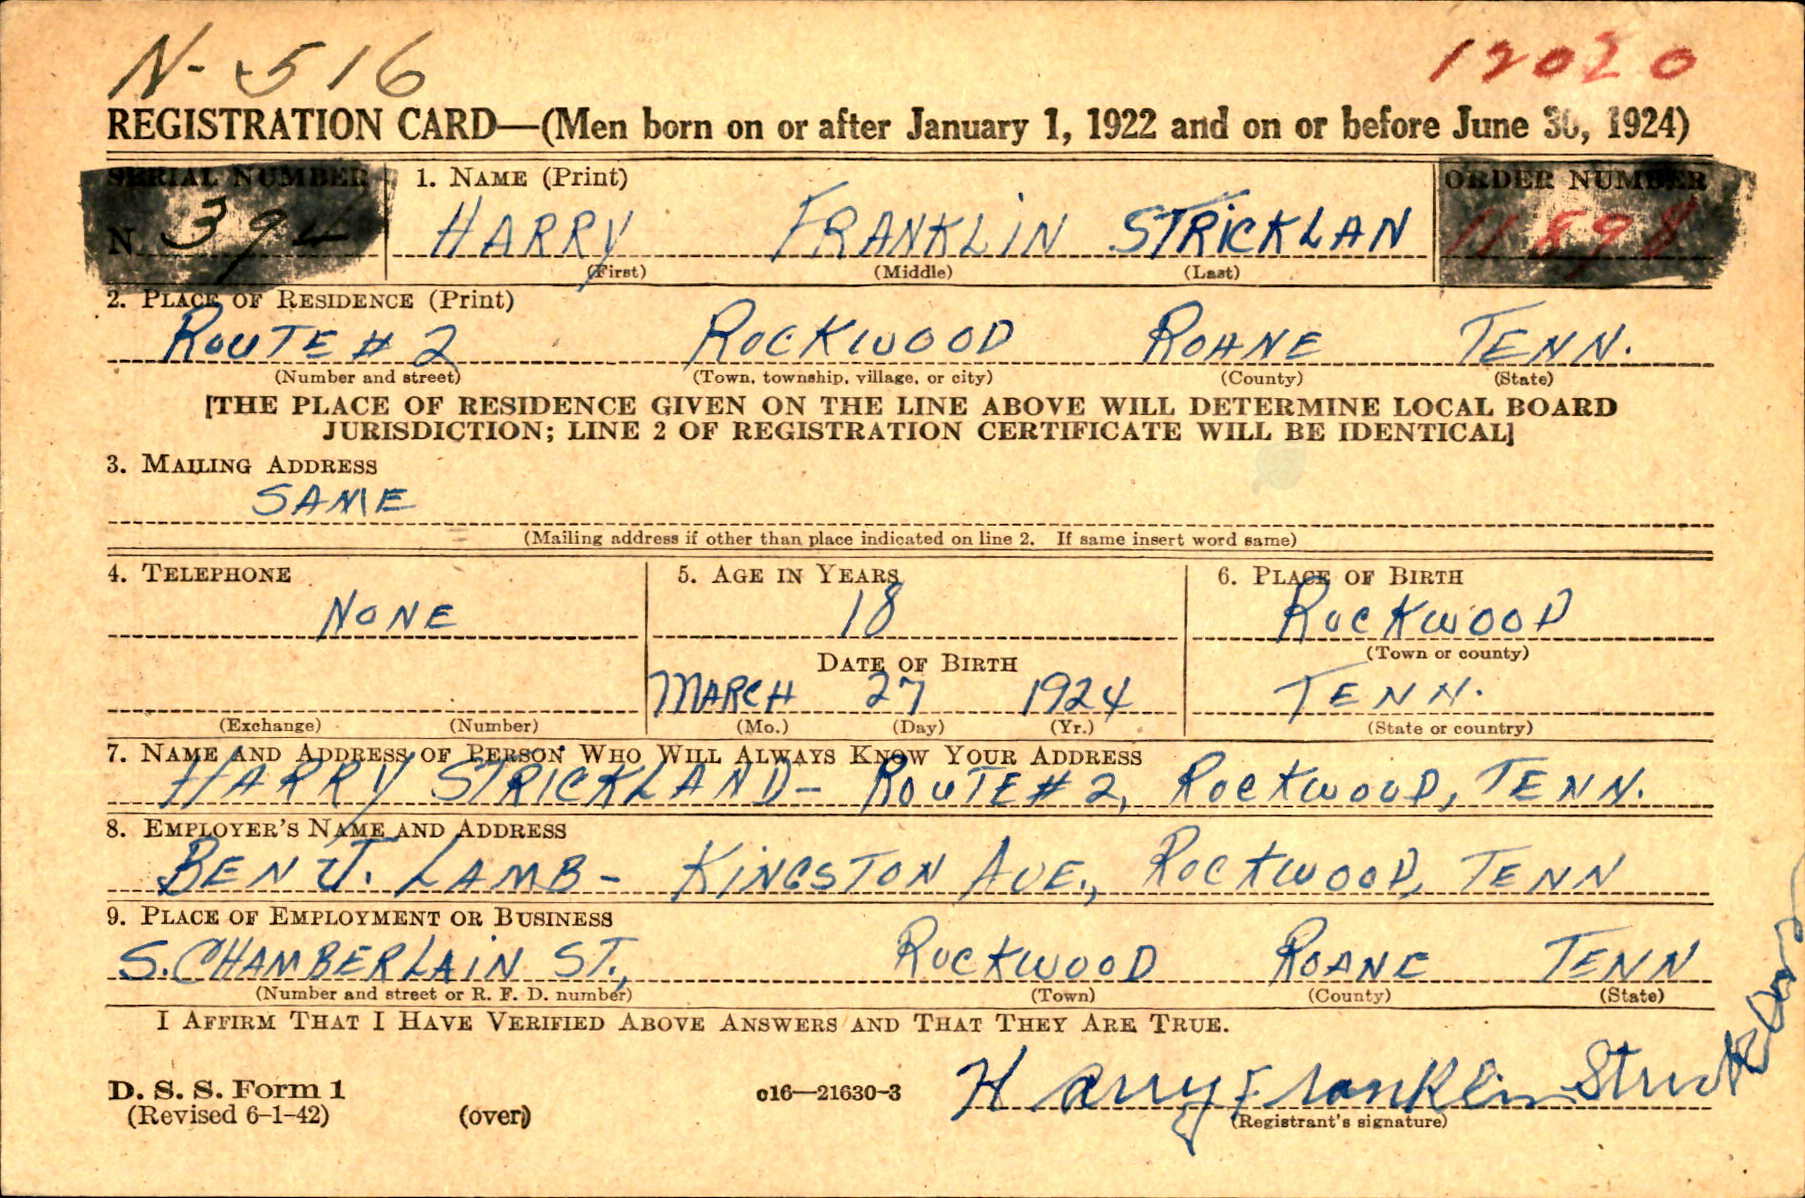 N-516 12020
REGISTRATION CARD—(Men born on or after January 1, 1922 and on or before June 30, 1924)
SERIAL NUMBER 1. NAME (Print) ORDER NUMBER
N 394 HARRY FRANKLIN STRICKLAN 11898
(First) (Middle) (Last)
2. PLACE OF RESIDENCE (Print)
ROUTE # 2 ROCKWOOD ROANE TENN.
(Number and street) (Town, township, village, or city) (County) (State)
[THE PLACE OF RESIDENCE GIVEN ON THE LINE ABOVE WILL DETERMINE LOCAL BOARD
JURISDICTION; LINE 2 OF REGISTRATION CERTIFICATE WILL BE IDENTICAL]
3. MAILING ADDRESS
SAME
(Mailing address if other than place indicated on line 2. If same insert word same)
4. TELEPHONE 5. AGE IN YEARS 6. PLACE OF BIRTH
NONE 18 ROCKWOOD
(Town or county)
DATE OF BIRTH
MARCH 27 1924 TENN.
(Exchange) (Number) (Mo.) (Day) (Yr.) (State or country)
7. NAME AND ADDRESS OF PERSON WHO WILL ALWAYS KNOW YOUR ADDRESS
HARRY STRICKLAND- ROUTE # 2, ROCKWOOD, TENN.
8. EMPLOYER'S NAME AND ADDRESS
BEN J. LAMB - KINGSTON AVE., ROCKWOOD, TENN
9. PLACE OF EMPLOYMENT OR BUSINESS
S. CHAMBERLAIN ST., ROCKWOOD ROANE TENN
(Number and street or R. F. D. number) (Town) (County) (State)
I AFFIRM THAT I HAVE VERIFIED ABOVE ANSWERS AND THAT THEY ARE TRUE.
D. S. S. Form 1 c16—21630-3 Harry Franklin Stricklan
(Revised 6-1-42) (over) (Registrant's signature)